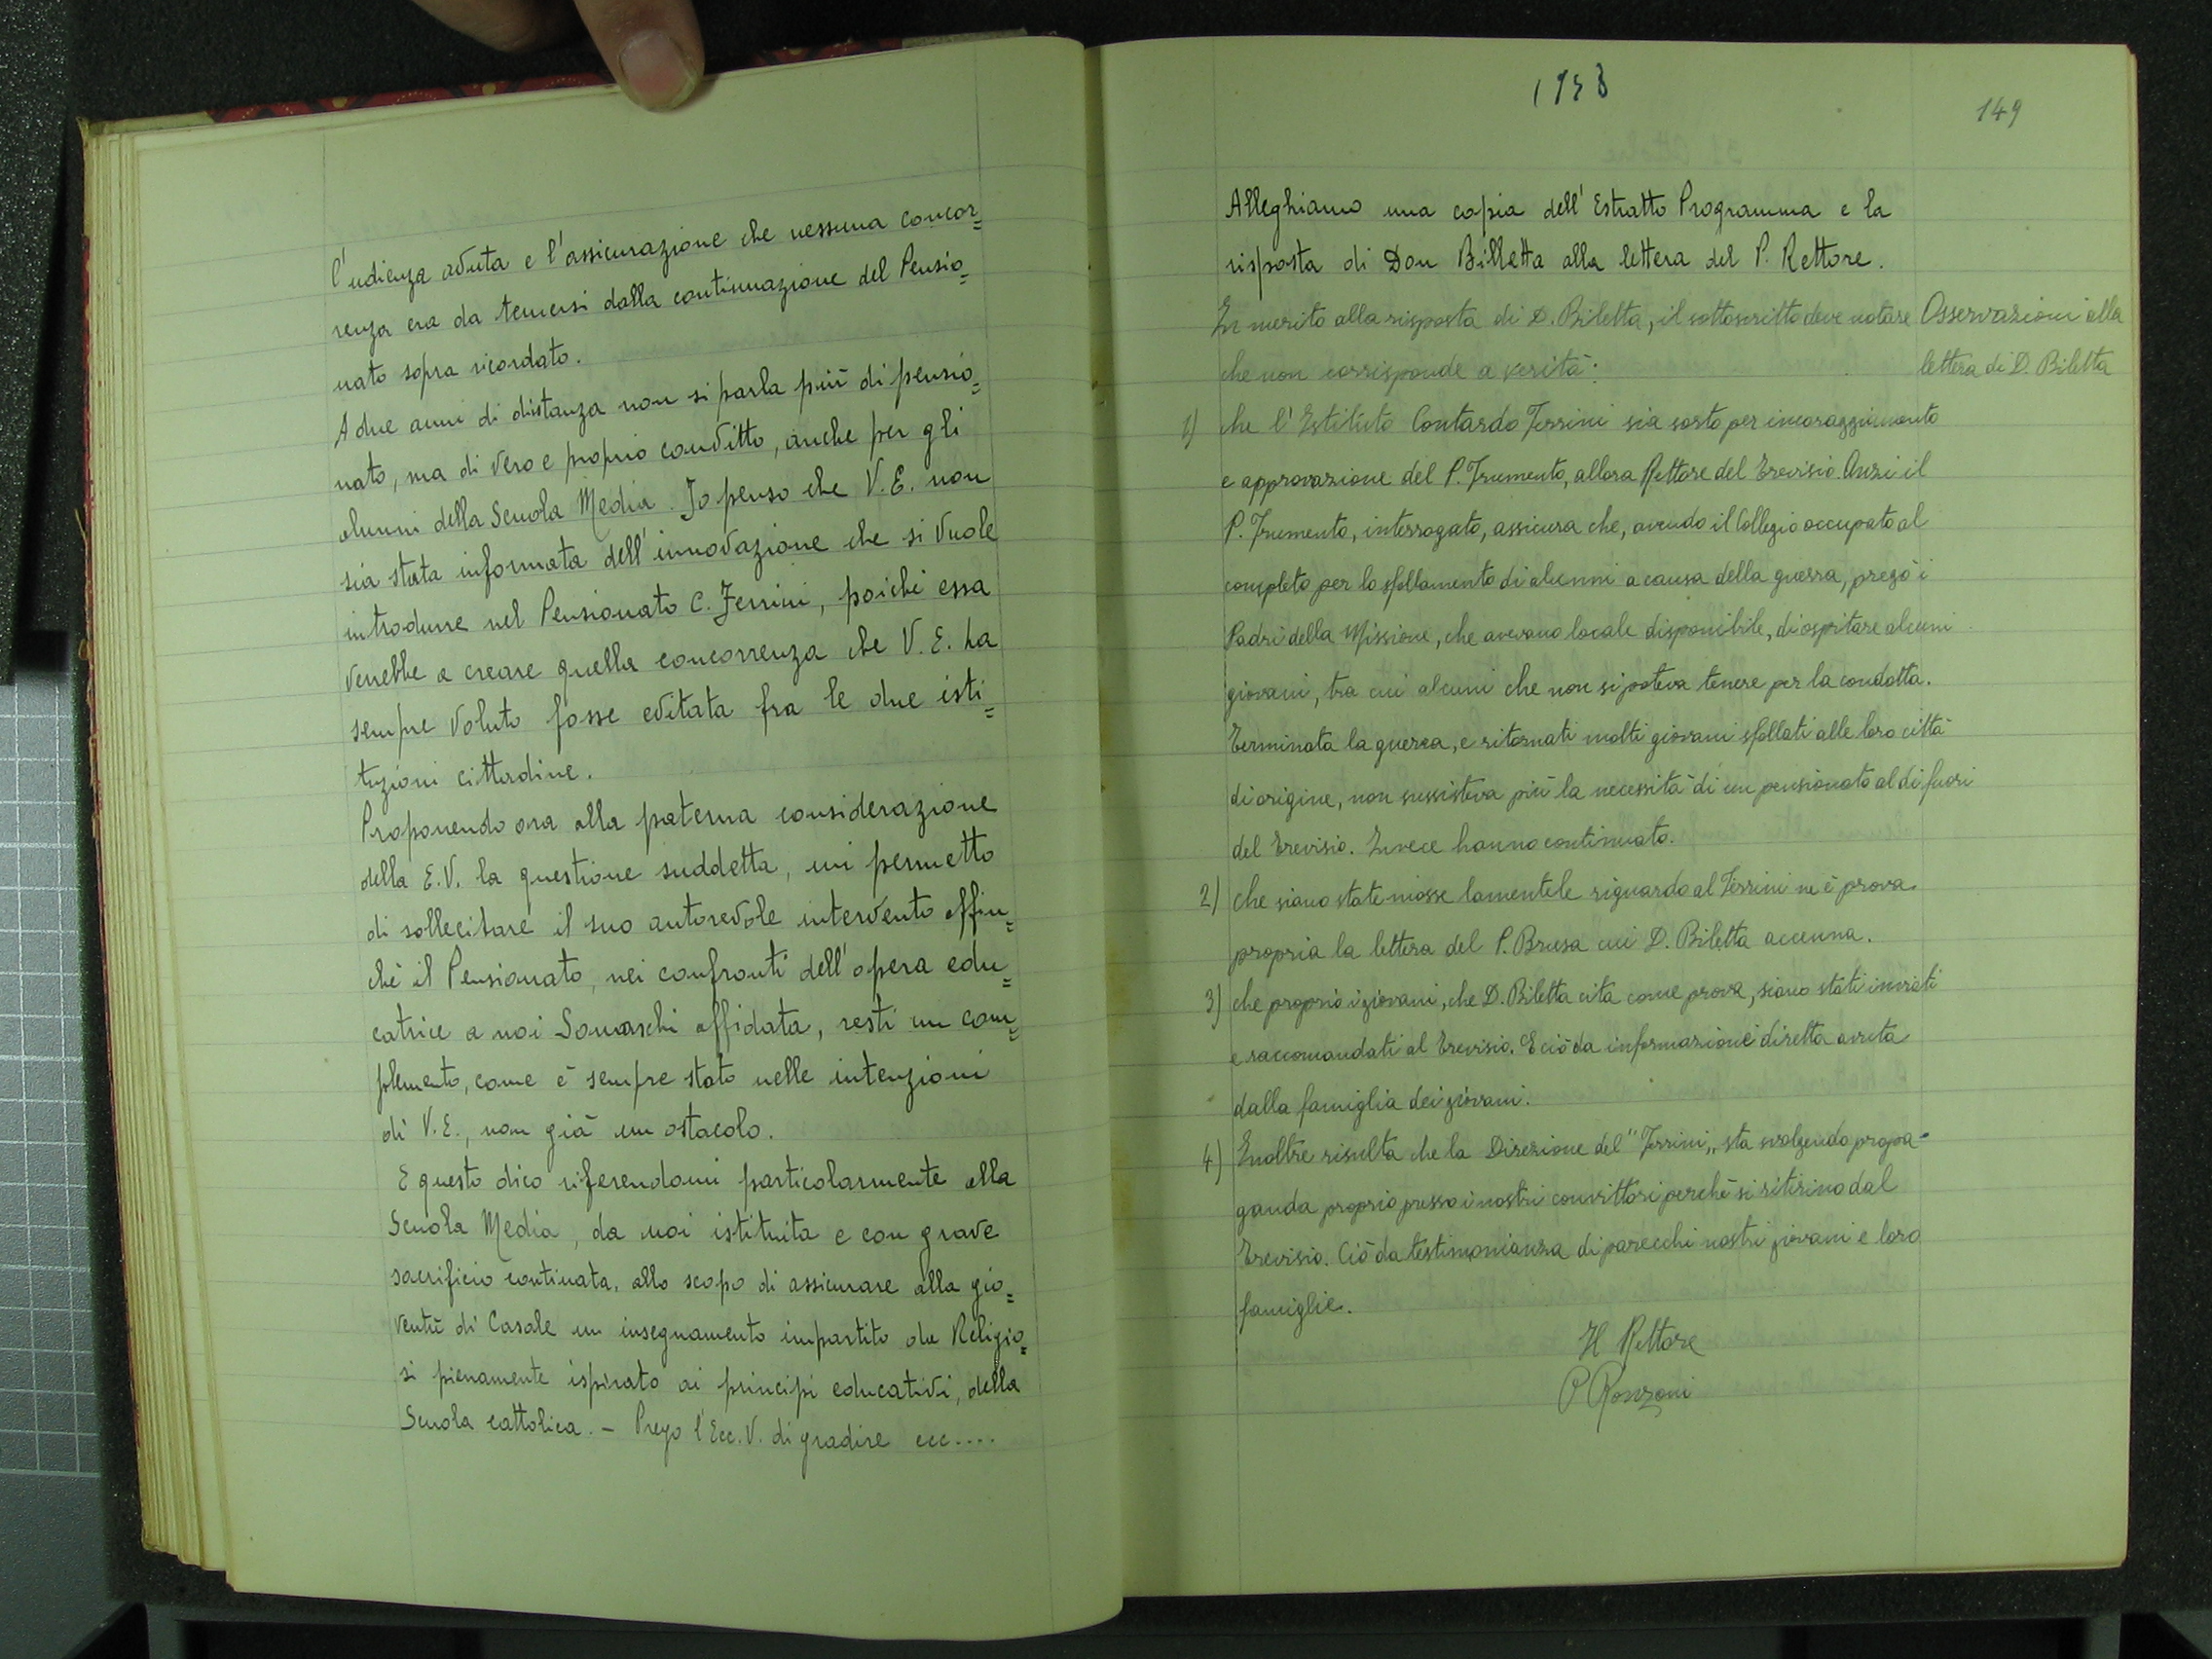 l'udienza avuta e l'assicurazione che nessuna concor=
renza era da temersi dalla continuazione del Pensio=
nato sopra ricordato.
A due anni di distanza non si parla più di pensio=
nato, ma di vero e proprio convitto, anche per gli
alunni della Scuola Media. Io penso che V.E. non
sia stata informata dell'innovazione che si vuole
introdurre nel Pensionato C. Ferrini, poichè essa
verrebbe a creare quella concorrenza che V.E. ha
sempre voluto fosse evitata fra le due isti=
tuzioni cittadine.
Proponendo ora alla paterna considerazione
della E.V. la questione suddetta, mi permetto
di sollecitare il suo autorevole intervento affin=
chè il Pensionato, nei confronti dell'opera edu=
catrice a noi Somaschi affidata, resti un com=
plemento, come è sempre stato nelle intenzioni
di V.E., non già un ostacolo.
E questo dico riferendomi particolarmente alla
Scuola Media, da noi istituita e con grave
sacrificio continata, allo scopo di assicurare alla gio=
ventù di Casale un insegnamento impartito da Religio=
si pienamente ispirato ai principi educativi, della
Scuola cattolica. - Prego l'Ecc. V. di gradire ecc....
1953
149
Alleghiamo una copia dell'Estratto Programma e la
risposta di Don Billetta alla lettera del P. Rettore.
In merito alla risposta di D. Biletta, il sottoscritto deve notare
che non corrisponde a verità:
Osservazioni alla
lettera di D. Biletta
1) che l'Istituto Contardo Ferrini sia sorto per incoraggiamento
e approvazione del P. Frumento, allora Rettore del Trevisio. Anzi il
P. Frumento, interrogato, assicura che, avendo il Collegio occupato al
completo per lo sfollamento di alunni a causa della guerra, pregò i
Padri della Missione, che avevano locale disponibile, di ospitare alcuni
giovani, tra cui alcuni che non si poteva tenere per la condotta.
Terminata la guerra, e ritornati molti giovani sfollati alle loro città
di origine, non sussisteva più la necessità di un pensionato al di fuori
del Trevisio. Invece hanno continuato.
2) che siano state mosse lamentele riguardo al Ferrini ne è prova
propria la lettera del P. Brusa cui D. Biletta accenna.
3) che proprio i giovani, che D. Biletta cita come prova, siano stati inviati
e raccomandati al Trevisio. E ciò da informazione diretta avuta
dalla famiglia dei giovani.
4) Inoltre risulta che la Direzione del "Ferrini" sta svolgendo propa-
ganda proprio presso i nostri convittori perchè si ritirino dal
Trevisio. Ciò da testimonianza di parecchi nostri giovani e loro
famiglie.
Il Rettore
P. Ronzoni